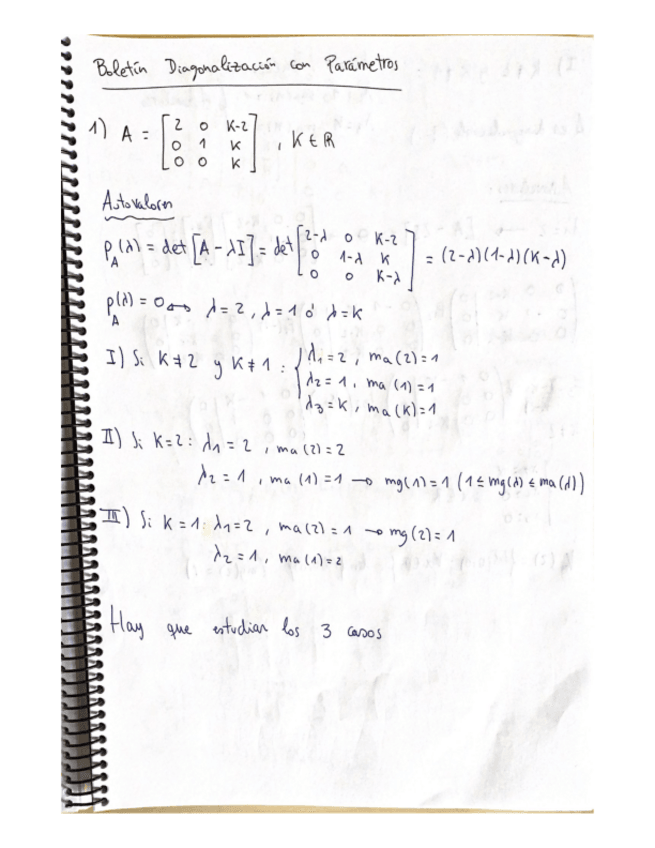 Boletín Diagonalización con Parámetros
1) A = [2 0 K-2
0 1 K
0 0 K] , K ∈ R
Autovalores
p_A(λ) = det[A - λI] = det [2-λ 0 K-2
0 1-λ K
0 0 K-λ] = (2-λ)(1-λ)(K-λ)
p_A(λ) = 0 ↔ λ = 2, λ = 1 ó λ = K
I) Si K ≠ 2 y K ≠ 1 : { λ1 = 2, ma(2) = 1
λ2 = 1, ma(1) = 1
λ3 = K, ma(K) = 1
II) Si K = 2 : λ1 = 2, ma(2) = 2
λ2 = 1, ma(1) = 1 → mg(1) = 1 (1 ≤ mg(λ) ≤ ma(λ))
III) Si K = 1 : λ1 = 2, ma(2) = 1 → mg(2) = 1
λ2 = 1, ma(1) = 2
Hay que estudiar los 3 casos